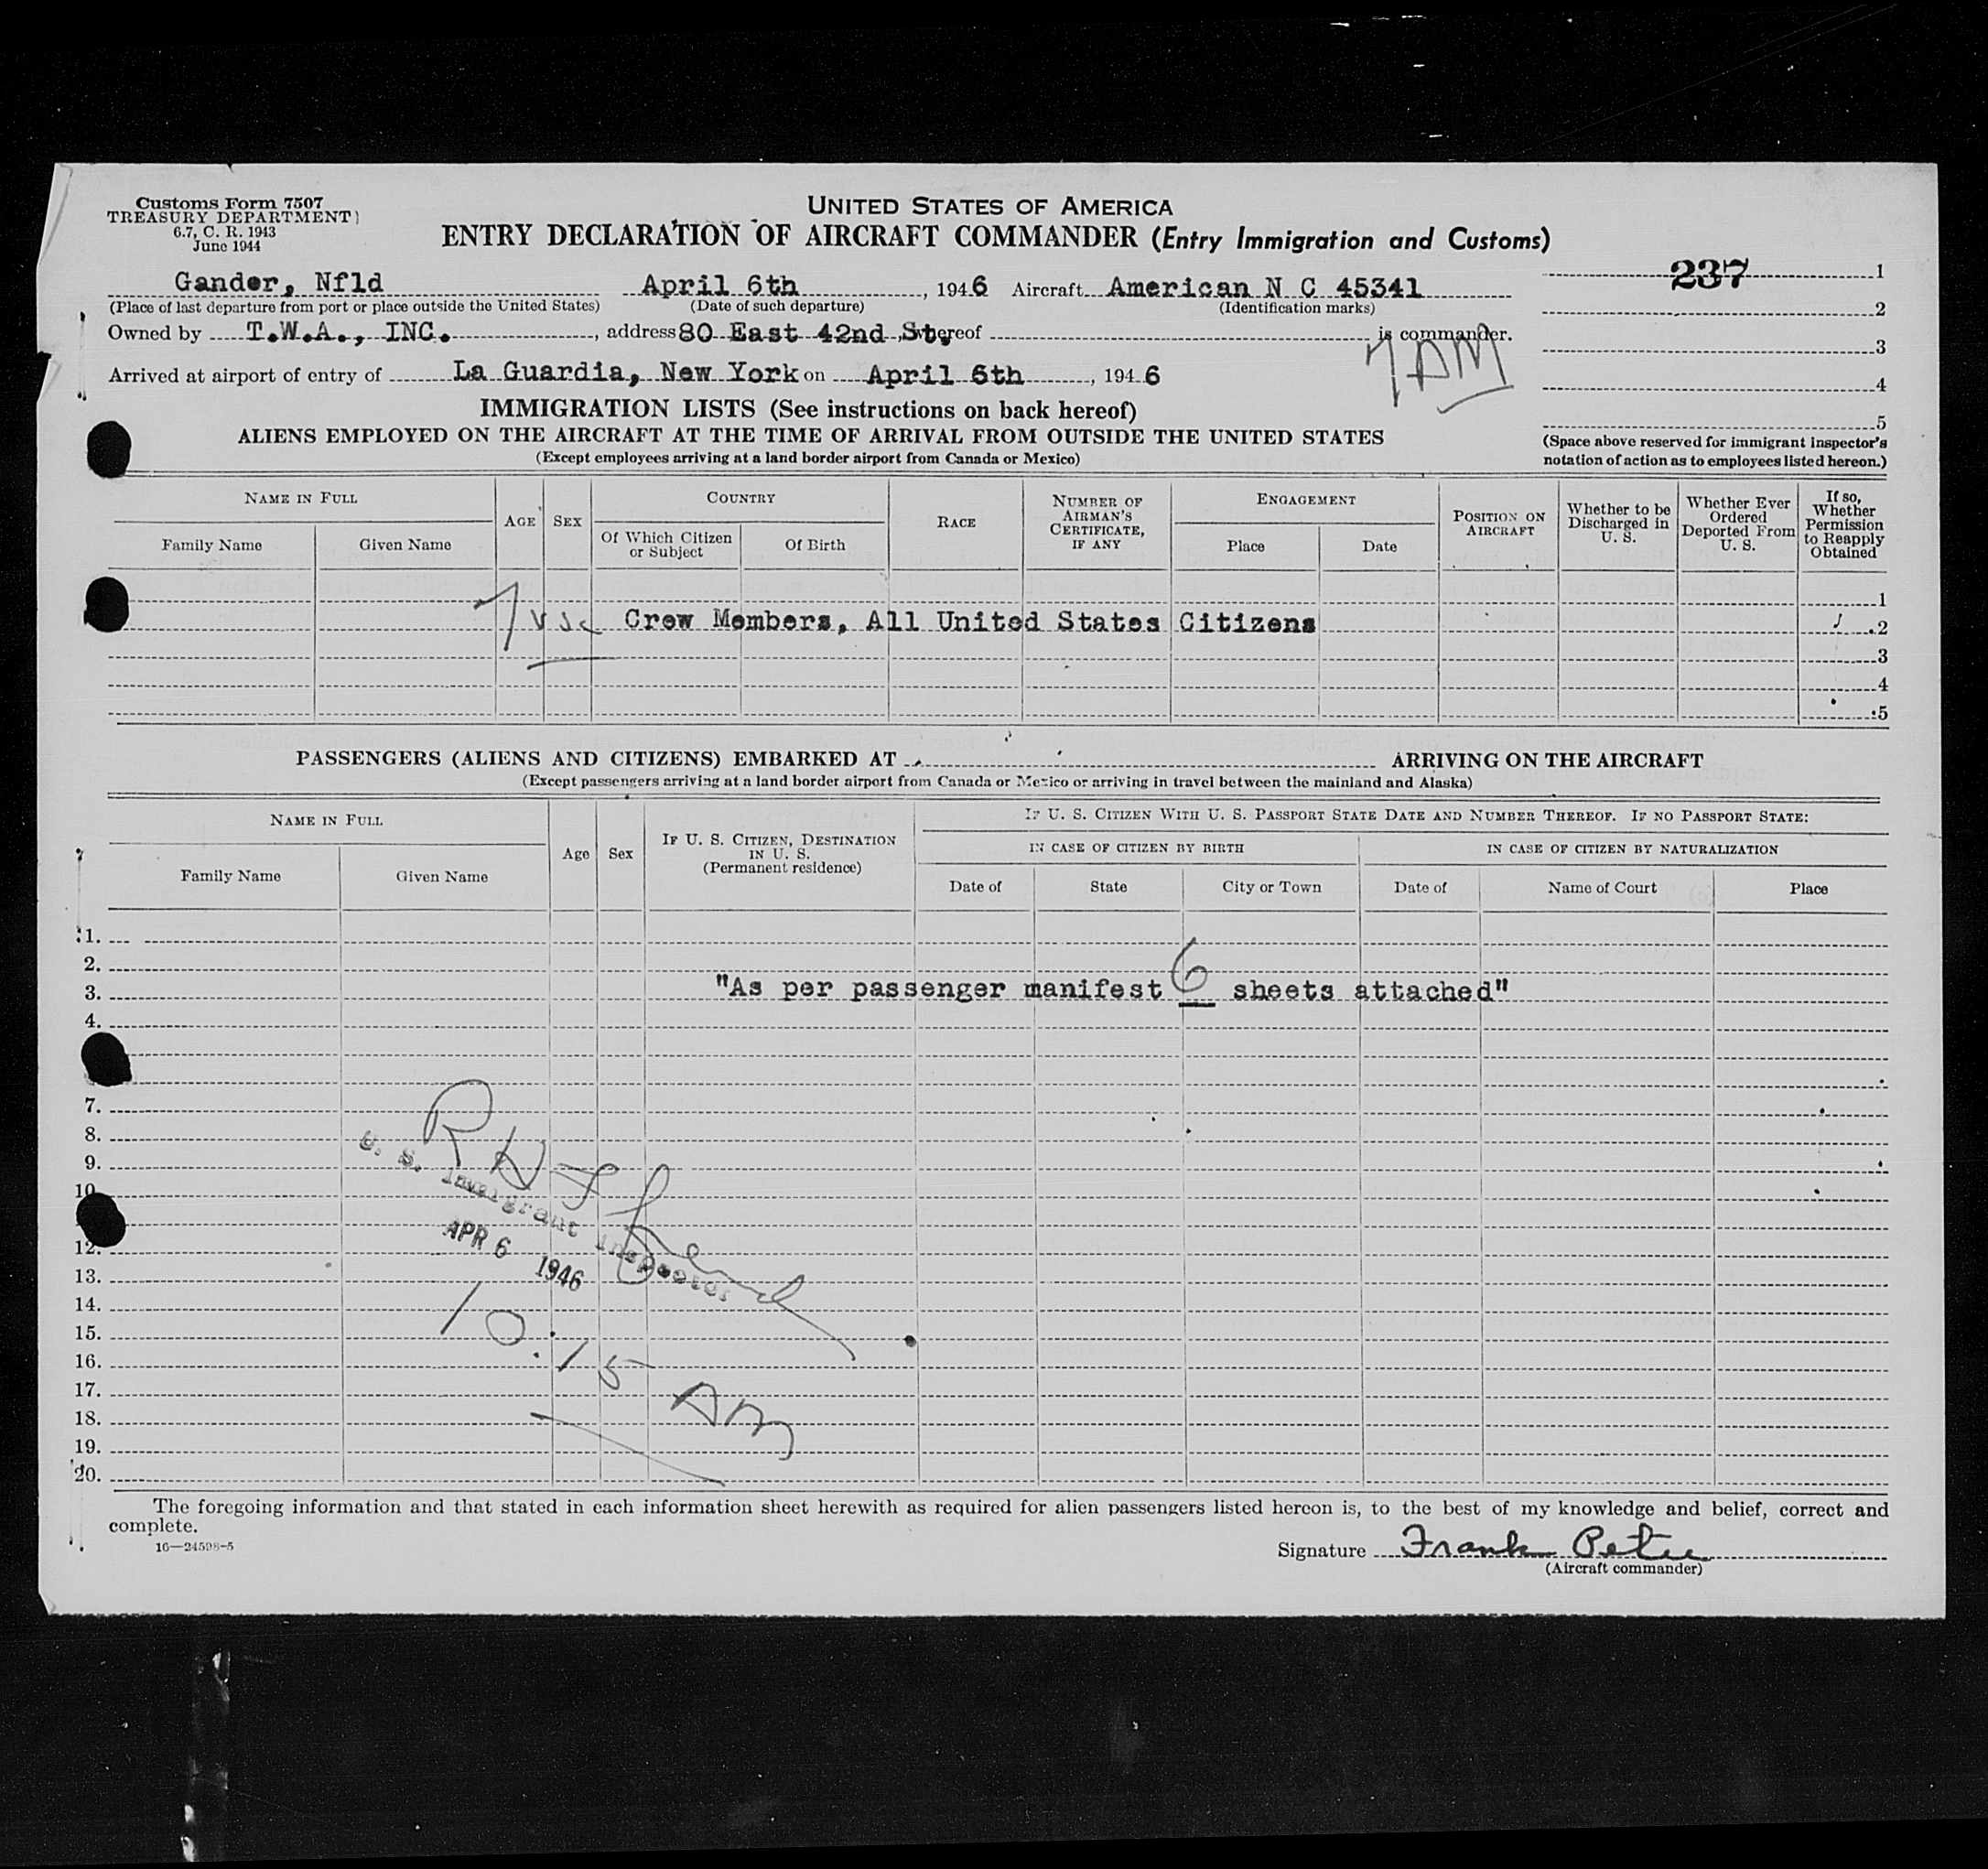 Customs Form 7507
TREASURY DEPARTMENT
6.7, C. R. 1943
June 1944
UNITED STATES OF AMERICA
ENTRY DECLARATION OF AIRCRAFT COMMANDER (Entry Immigration and Customs)
237 1
Gander, Nfld April 6th, 1946 Aircraft American N C 45341
(Place of last departure from port or place outside the United States) (Date of such departure) (Identification marks)
2
Owned by T.W.A., INC., address 80 East 42nd St, whereof is commander.
3
7 AM
Arrived at airport of entry of La Guardia, New York on April 6th, 1946
4
IMMIGRATION LISTS (See instructions on back hereof)
5
ALIENS EMPLOYED ON THE AIRCRAFT AT THE TIME OF ARRIVAL FROM OUTSIDE THE UNITED STATES
(Except employees arriving at a land border airport from Canada or Mexico)
(Space above reserved for immigrant inspector's
notation of action as to employees listed hereon.)
NAME IN FULL
Family Name Given Name
AGE SEX
COUNTRY
Of Which Citizen
or Subject
Of Birth
RACE
NUMBER OF
AIRMAN'S
CERTIFICATE,
IF ANY
ENGAGEMENT
Place Date
POSITION ON
AIRCRAFT
Whether to be
Discharged in
U. S.
Whether Ever
Ordered
Deported From
U. S.
If so,
Whether
Permission
to Reapply
Obtained
1
7 USC Crew Members, All United States Citizens 2
3
4
5
PASSENGERS (ALIENS AND CITIZENS) EMBARKED AT ARRIVING ON THE AIRCRAFT
(Except passengers arriving at a land border airport from Canada or Mexico or arriving in travel between the mainland and Alaska)
NAME IN FULL
Family Name Given Name
Age Sex
IF U. S. CITIZEN, DESTINATION
IN U. S.
(Permanent residence)
IF U. S. CITIZEN WITH U. S. PASSPORT STATE DATE AND NUMBER THEREOF. IF NO PASSPORT STATE:
IN CASE OF CITIZEN BY BIRTH IN CASE OF CITIZEN BY NATURALIZATION
Date of State City or Town Date of Name of Court Place
1.
2.
3. "As per passenger manifest 6 sheets attached"
4.
7.
8.
9.
U. S. Immigrant Inspector
10
APR 6 1946
12.
13.
14.
10:15 AM
15.
16.
17.
18.
19.
20.
The foregoing information and that stated in each information sheet herewith as required for alien passengers listed hereon is, to the best of my knowledge and belief, correct and
complete.
16—24598-5
Signature Frank
(Aircraft commander)